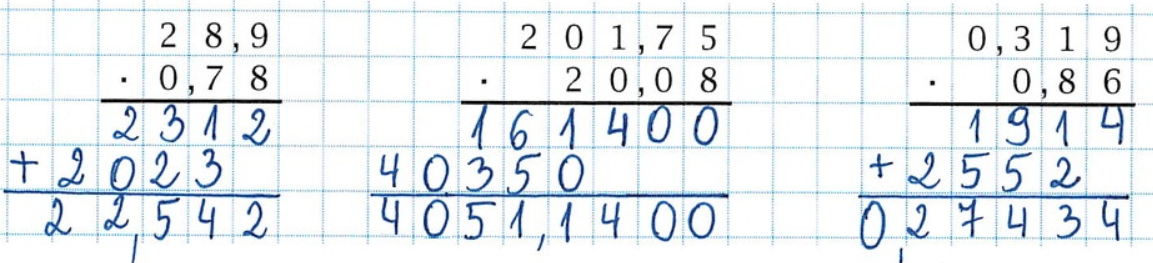 28,9
· 0,78
2312
+ 2023
22,542
201,75
· 20,08
161400
40350
4051,1400
0,319
· 0,86
1914
+ 2552
0,27434